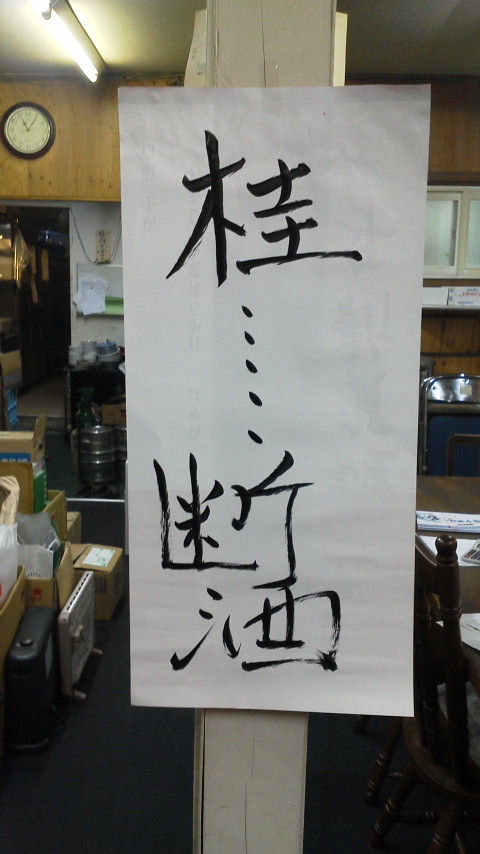 桂
・・・・・
断酒